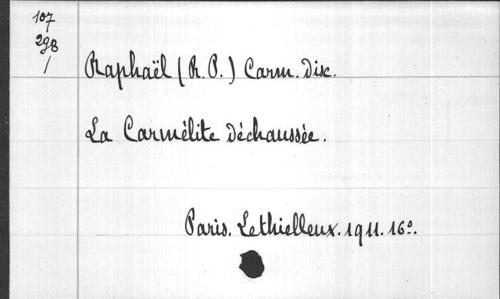 107
298
/
Raphaël (R.P.) Carm. Disc.
La Carmélite Déchaussée.
Paris. Lethielleux. 1911. 16º.